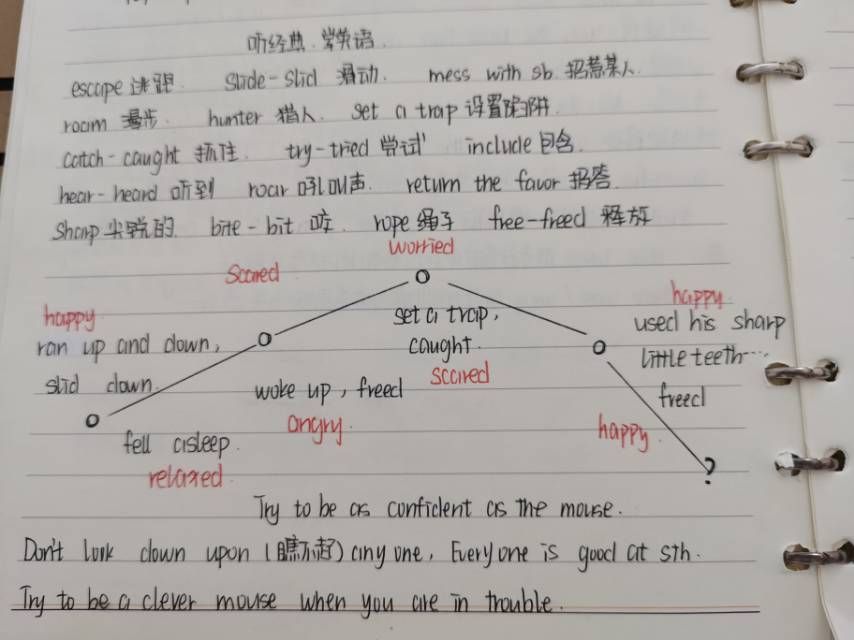 听经典.学英语.
escape 逃跑. slide-slid 滑动. mess with sb. 招惹某人.
roam 漫步. hunter 猎人. set a trap 设置陷阱.
catch-caught 抓住. try-tried 尝试 include 包含.
hear-heard 听到 roar 吼叫声. return the favor 报答.
Sharp 尖锐的. bite-bit 咬. rope 绳子 free-freed 释放
worried
Scared
happy
happy
ran up and down,
set a trap,
used his sharp
caught.
little teeth...
slid down.
woke up, freed
scared
freed
fell asleep.
angry.
happy.
relaxed.
?
Try to be as confident as the mouse.
Don't look down upon (瞧不起) any one, Every one is good at sth.
Try to be a clever mouse when you are in trouble.